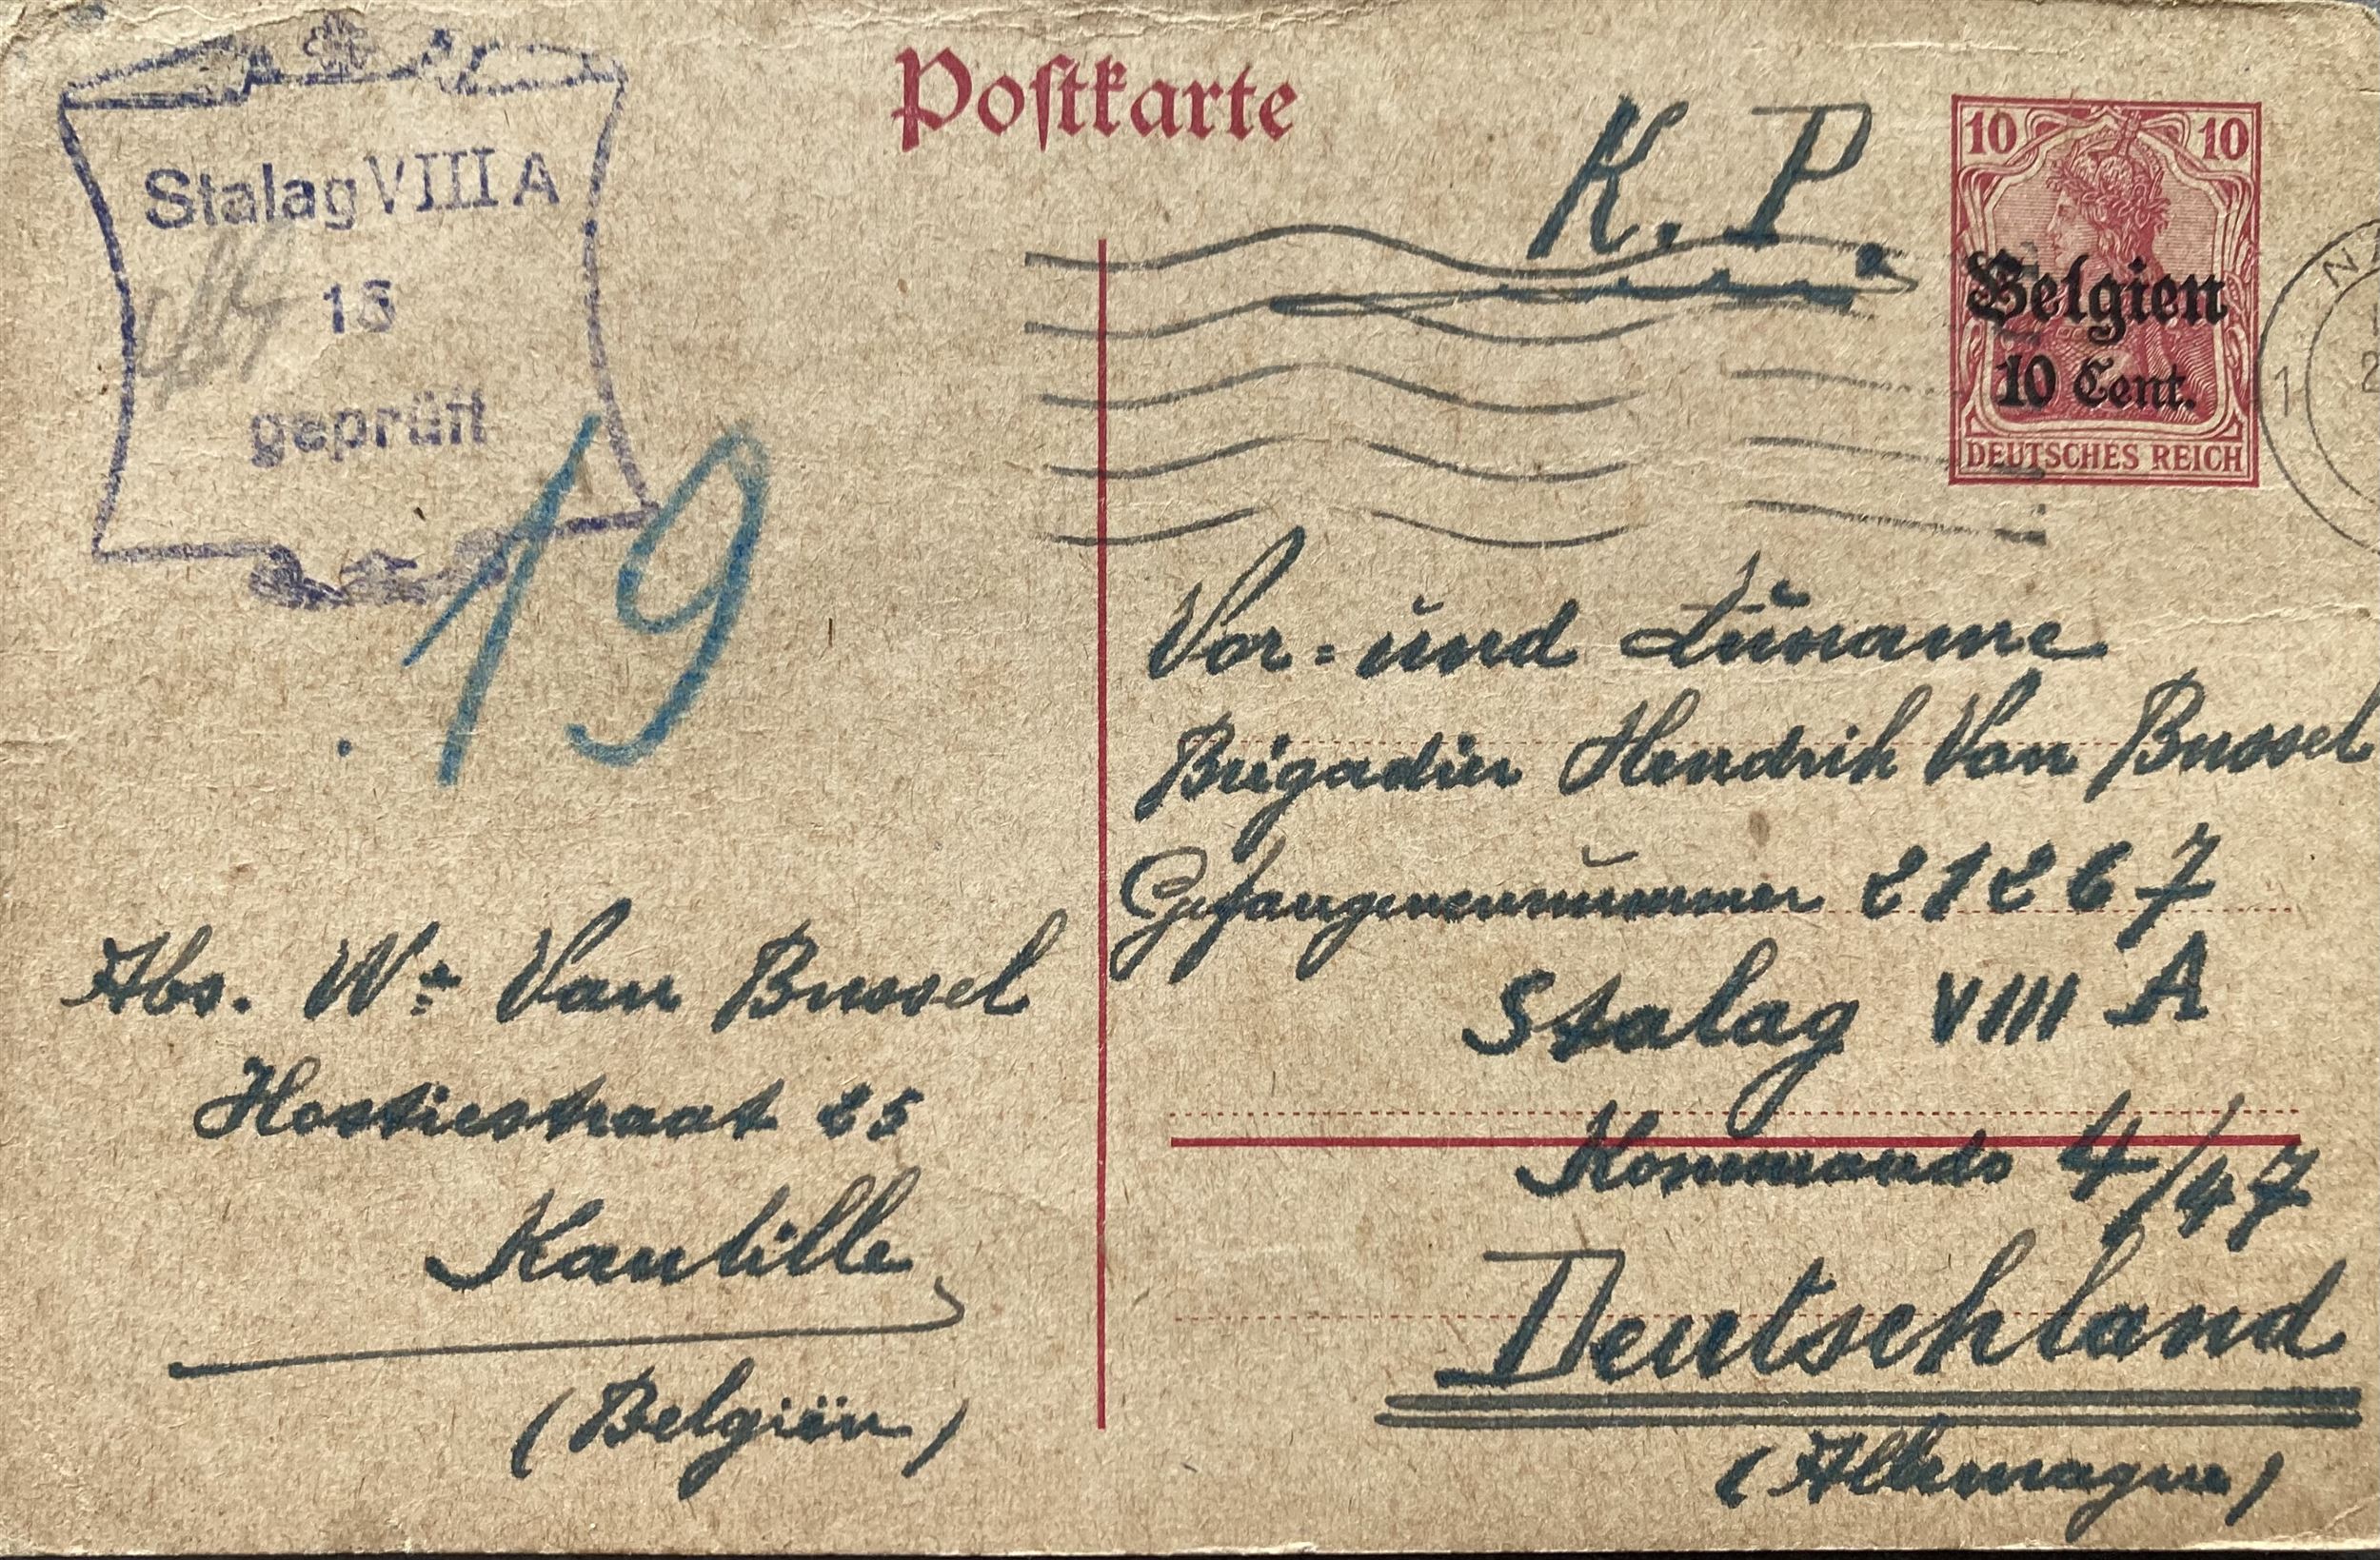 Postkarte
Stalag VIII A
geprüft
19
K. P.
10 10
Belgien
10 Cent.
DEUTSCHES REICH
1
Vor- und Zuname
Brigadier Hendrik Van Bussel
Gefangenennummer 21267
Stalag VIII A
Kommando 4/47
Deutschland
(Allemagne)
Abs. Van Bussel
Hostiestraat 25
Kantille
(Belgiën)